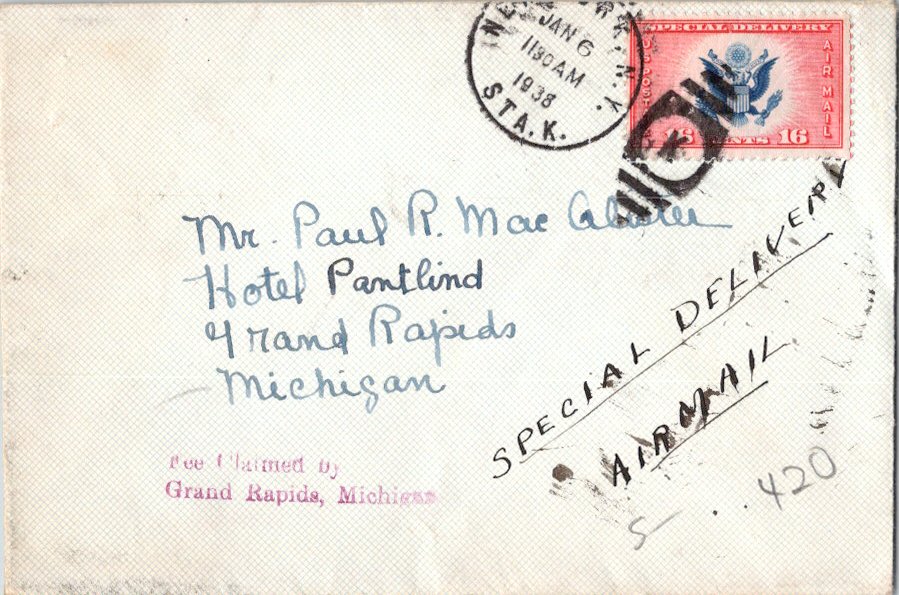 NEW YORK, N.Y.
JAN 6
1130 AM
1938
STA. K.
SPECIAL DELIVERY
U.S. POSTAGE
AIR MAIL
16 CENTS 16
K
Mr. Paul R. Mac
Hotel Pantlind
Grand Rapids
Michigan
SPECIAL DELIVERY
AIRMAIL
Fee Claimed by
Grand Rapids, Michigan
420